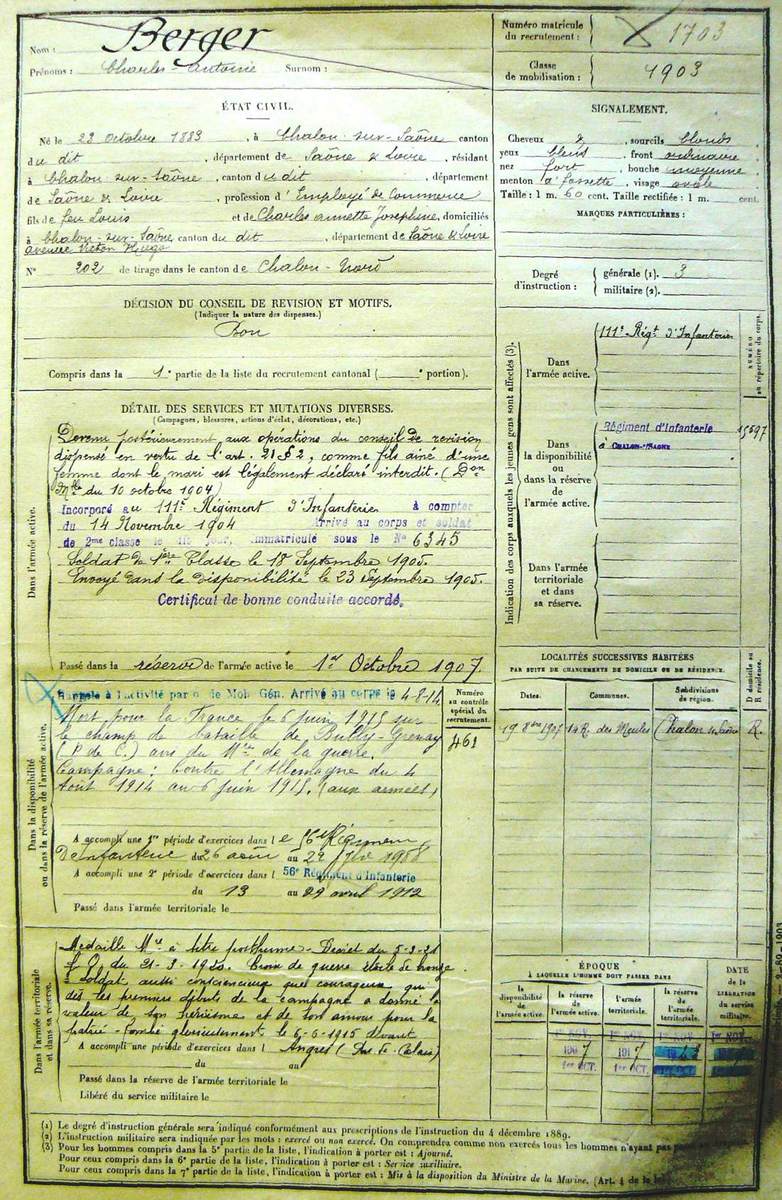 Nom : Berger
Prénoms : Charles-Antoine Surnom :
Numéro matricule du recrutement : 1703
Classe de mobilisation : 1903
ÉTAT CIVIL.
Né le 23 Octobre 1883, à Chalon-sur-Saône canton
du dit, département de Saône & Loire, résidant
à Chalon-sur-Saône, canton du dit, département
de Saône & Loire, profession d'Employé de Commerce
fils de feu Louis et de Charles Annette Joséphine, domiciliés
à Chalon-sur-Saône, canton du dit, département de Saône & Loire
avenue Victor Hugo
N° 202 de tirage dans le canton de Chalon-Nord
SIGNALEMENT.
Cheveux &, sourcils blonds
yeux bleus, front ordinaire
nez fort, bouche moyenne
menton à fossette, visage ovale
Taille : 1 m. 60 cent. Taille rectifiée : 1 m. cent.
MARQUES PARTICULIÈRES :
Degré d'instruction : générale (1). 3
militaire (2).
DÉCISION DU CONSEIL DE REVISION ET MOTIFS.
(Indiquer la nature des dispenses.)
Bon
Compris dans la 1e partie de la liste du recrutement cantonal ( e portion).
DÉTAIL DES SERVICES ET MUTATIONS DIVERSES.
(Campagnes, blessures, actions d'éclat, décorations, etc.)
Dans l'armée active.
Devenu postérieurement aux opérations du conseil de revision
dispensé en vertu de l'art. 21 § 2, comme fils aîné d'une
femme dont le mari est légalement déclaré interdit. (Don
Mlle du 10 octobre 1904)
Incorporé au 111e Régiment d'Infanterie à compter
du 14 Novembre 1904 Arrivé au corps et soldat
de 2me classe le dit jour, immatriculé sous le No 6345
Soldat de 1ère Classe le 18 Septembre 1905.
Envoyé dans la disponibilité le 23 Septembre 1905.
Certificat de bonne conduite accordé.
Passé dans la réserve de l'armée active le 1er Octobre 1907.
Indication des corps auxquels les jeunes gens sont affectés (3).
Dans l'armée active.
111e Régt d'Infanterie
NUMÉRO au répertoire du corps.
Dans la disponibilité ou dans la réserve de l'armée active.
Régiment d'Infanterie
à CHALON-SUR-SAÔNE
Dans l'armée territoriale et dans sa réserve.
LOCALITÉS SUCCESSIVES HABITÉES
PAR SUITE DE CHANGEMENTS DE DOMICILE OU DE RÉSIDENCE.
Dates. Communes. Subdivisions de région. D domicile ou R résidence.
19 8bre 1907 14 R. des Meules Chalon s/ Saône R.
Dans la disponibilité ou dans la réserve de l'armée active.
Rappelé à l'activité par o de Mob. Gén. Arrivé au corps le 4-8-14
Mort pour la France le 6 juin 1915 sur
le champ de bataille de Bully-Grenay
(P de C.) avis du Mre de la guerre.
Campagne : Contre l'Allemagne du 4
Août 1914 au 6 juin 1915. (aux armées)
Numéro au contrôle spécial du recrutement.
461
A accompli une 1re période d'exercices dans le 56e Régiment
d'Infanterie du 26 août au 22 7bre 1908
A accompli une 2e période d'exercices dans l 56e Régiment d'Infanterie
du 13 au 29 avril 1912
Passé dans l'armée territoriale le
Dans l'armée territoriale et dans sa réserve.
Médaille Mre à titre posthume - Décret du
J.O. du 21-3-1920. Croix de guerre étoile de bronze
Soldat aussi consciencieux que courageux, qui
dès les premiers débuts de la campagne a donné la
valeur de son héroïsme et de son amour pour la
patrie - tombé glorieusement le 6-6-1915 devant
A accompli une période d'exercices dans l Angres (Pas-de-Calais)
du au
Passé dans la réserve de l'armée territoriale le
Libéré du service militaire le
ÉPOQUE
À LAQUELLE L'HOMME DOIT PASSER DANS
la disponibilité de l'armée active. la réserve de l'armée active. l'armée territoriale. la réserve de l'armée territoriale. DATE DE LA LIBÉRATION du service militaire.
1907 1917
1er OCT. 1er OCT.
(1) Le degré d'instruction générale sera indiqué conformément aux prescriptions de l'instruction du 4 décembre 1889.
(2) L'instruction militaire sera indiquée par les mots : exercé ou non exercé. On comprendra comme non exercés tous les hommes n'ayant pas
(3) Pour les hommes compris dans la 5e partie de la liste, l'indication à porter est : Ajourné.
Pour ceux compris dans la 6e partie de la liste, l'indication à porter est : Service auxiliaire.
Pour ceux compris dans la 7e partie de la liste, l'indication à porter est : Mis à la disposition du Ministre de la Marine. (Art. 4 de la